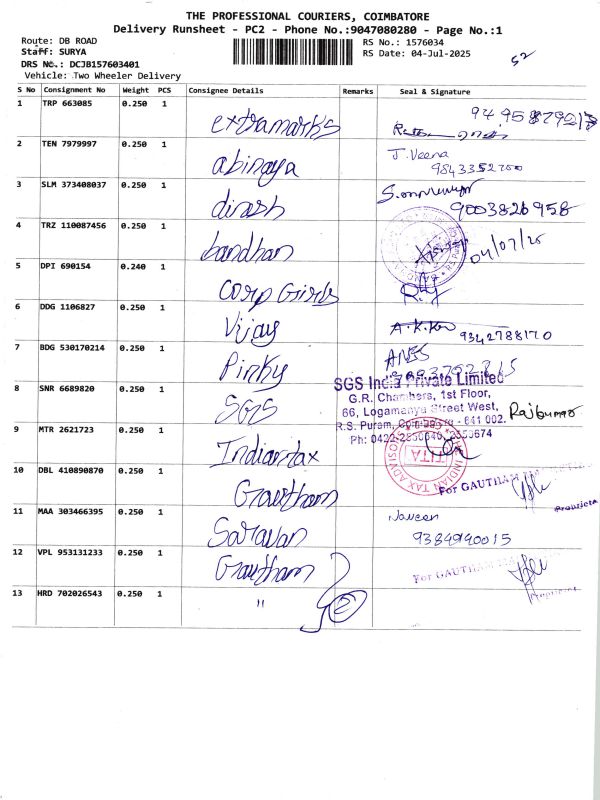 THE PROFESSIONAL COURIERS, COIMBATORE
Delivery Runsheet - PC2 - Phone No.:9047080280 - Page No.:1
Route: DB ROAD
RS No.: 1576034
Staff: SURYA
RS Date: 04-Jul-2025
52
DRS No.: DCJB157603401
Vehicle: Two Wheeler Delivery
S No Consignment No Weight PCS Consignee Details Remarks Seal & Signature
1 TRP 663085 0.250 1 extramarks
2 TEN 7979997 0.250 1 abinaya J. Veena
9843352700
3 SLM 373408037 0.250 1 dinesh
9003826958
4 TRZ 110087456 0.250 1 bandhan 04/07/25
5 DPI 690154 0.240 1 Corp Girls
6 DDG 1106827 0.250 1 Vijay 9342788170
7 BDG 530170214 0.250 1 Pinky
8 SNR 6689820 0.250 1 SGS
SGS India Private Limited
G.R. Chambers, 1st Floor,
66, Logamanya Street West, Rajkumar
R.S. Puram, Coimbatore - 641 002.
Ph: 0422-2550640, 2550674
9 MTR 2621723 0.250 1 Indian tax
INDIAN TAX ADVISOR
TITA
10 DBL 410890870 0.250 1 Gautham
For GAUTHAM
Proprietor
11 MAA 303466395 0.250 1 Saravan Naveen
9384990015
12 VPL 953131233 0.250 1 Gautham
For GAUTHAM
Proprietor
13 HRD 702026543 0.250 1 " 2